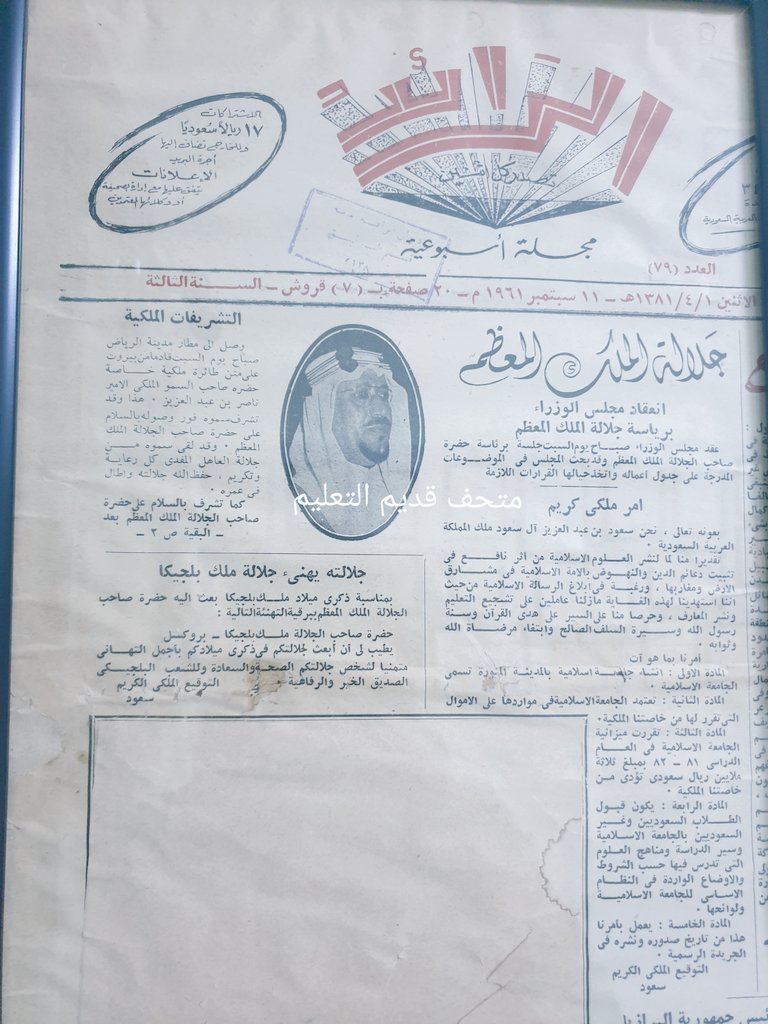 الرائد
تصدر كل اثنين
مجلة أسبوعية
الاشتراكات
١٧ ريالاً سعودياً
وللخارج تضاف اليها
أجرة البريد
الإعلانات
يتفق عليها مع إدارة الصحيفة
أو وكلائها المعتمدين
العربية السعودية
العدد (٧٩)
الاثنين ١/٤/١٣٨١هـ - ١١ سبتمبر ١٩٦١ م - ٢٠ صفحة - (٧) قروش - السنة الثالثة
جلالة الملك المعظم
انعقاد مجلس الوزراء
برياسة جلالة الملك المعظم
عقد مجلس الوزراء صباح يوم السبت جلسة برئاسة حضرة
صاحب الجلالة الملك المعظم وقد بحث المجلس في الموضوعات
المدرجة على جدول اعماله واتخذ حيالها القرارات اللازمة
امر ملكي كريم
بعونه تعالى ، نحن سعود بن عبد العزيز آل سعود ملك المملكة
العربية السعودية ٠
تقديرا منا لما لنشر العلوم الاسلامية من أثر نافع في
تثبيت دعائم الدين والنهوض بالامة الاسلامية في مشارق
الارض ومغاربها ، ورغبة في ابلاغ الرسالة الاسلامية من حيث
اننا استهدينا لهذه الغاية مازلنا عاملين على تشجيع التعليم
ونشر المعارف ، وحرصا منا على السير على هدى القرآن وسنة
رسول الله وسيرة السلف الصالح وابتغاء مرضاة الله
وثوابه ٠
أمرنا بما هو آت
المادة الاولى : انشاء جامعة اسلامية بالمدينة المنورة تسمى
الجامعة الاسلامية ٠
المادة الثانية : تعتمد الجامعة الاسلامية في مواردها على الاموال
التي تقرر لها من خاصتنا الملكية ٠
المادة الثالثة : تقررت ميزانية
الجامعة الاسلامية في العام
الدراسي ٨١ - ٨٢ بمبلغ ثلاثة
ملايين ريال سعودي تؤدى من
خاصتنا الملكية ٠
المادة الرابعة : يكون قبول
الطلاب السعوديين وغير
السعوديين بالجامعة الاسلامية
وسير الدراسة ومناهج العلوم
التي تدرس فيها حسب الشروط
والاوضاع الواردة في النظام
الاساسي للجامعة الاسلامية
ولوائحها ٠
المادة الخامسة : يعمل بأمرنا
هذا من تاريخ صدوره ونشره في
الجريدة الرسمية ٠
التوقيع الملكي الكريم
سعود
التشريفات الملكية
وصل الى مطار مدينة الرياض
صباح يوم السبت قادما من بيروت
على متن طائرة ملكية خاصة
حضرة صاحب السمو الملكي الامير
ناصر بن عبد العزيز ٠ هذا وقد
تشرف سموه فور وصوله بالسلام
على حضرة صاحب الجلالة الملك
المعظم ٠ وقد لقي سموه من
جلالة العاهل المفدى كل رعاية
وتكريم ، حفظ الله جلالته واطال
في عمره ٠
كما تشرف بالسلام على حضرة
صاحب الجلالة الملك المعظم بعد
- البقية ص ٢ -
متحف قديم التعليم
جلالته يهنىء جلالة ملك بلجيكا
بمناسبة ذكرى ميلاد ملك بلجيكا بعث اليه حضرة صاحب
الجلالة الملك المعظم ببرقية التهنئة التالية :
حضرة صاحب الجلالة ملك بلجيكا - بروكسل
يطيب لي أن أبعث لجلالتكم في ذكرى ميلادكم بأجمل التهاني
متمنيا لشخص جلالتكم الصحة والسعادة وللشعب البلجيكي
الصديق الخير والرفاهية ٠
التوقيع الملكي الكريم
سعود